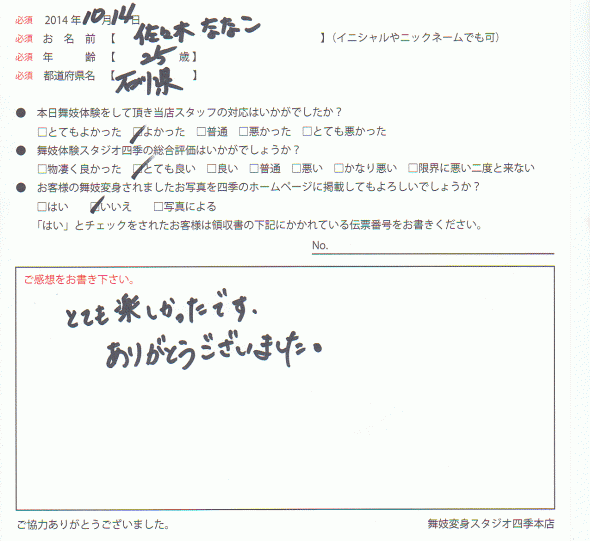 必須 2014年10月14日
必須 お名前【 佐々木 ななこ 】（イニシャルやニックネームでも可）
必須 年齢【 25 歳】
必須 都道府県名【 石川県 】
● 本日舞妓体験をして頂き当店スタッフの対応はいかがでしたか？
□とてもよかった ☑よかった □普通 □悪かった □とても悪かった
● 舞妓体験スタジオ四季の総合評価はいかがでしょうか？
□物凄く良かった ☑とても良い □良い □普通 □悪い □かなり悪い □限界に悪い二度と来ない
● お客様の舞妓変身されましたお写真を四季のホームページに掲載してもよろしいでしょうか？
□はい ☑いいえ □写真による
「はい」とチェックをされたお客様は領収書の下記にかかれている伝票番号をお書きください。
No.
ご感想をお書き下さい。
とても楽しかったです.
ありがとうございました。
ご協力ありがとうございました。 舞妓変身スタジオ四季本店